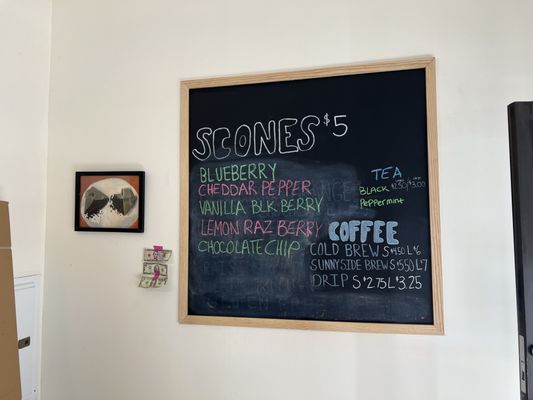 SCONES $5
BLUEBERRY
CHEDDAR PEPPER
VANILLA BLK BERRY
LEMON RAZ BERRY
CHOCOLATE CHIP
TEA
BLACK $2.50/$3.00
PEPPERMINT
COFFEE
COLD BREW S $4.50 L $6
SUNNYSIDE BREW S $5.50 L $7
DRIP S $2.75 L $3.25